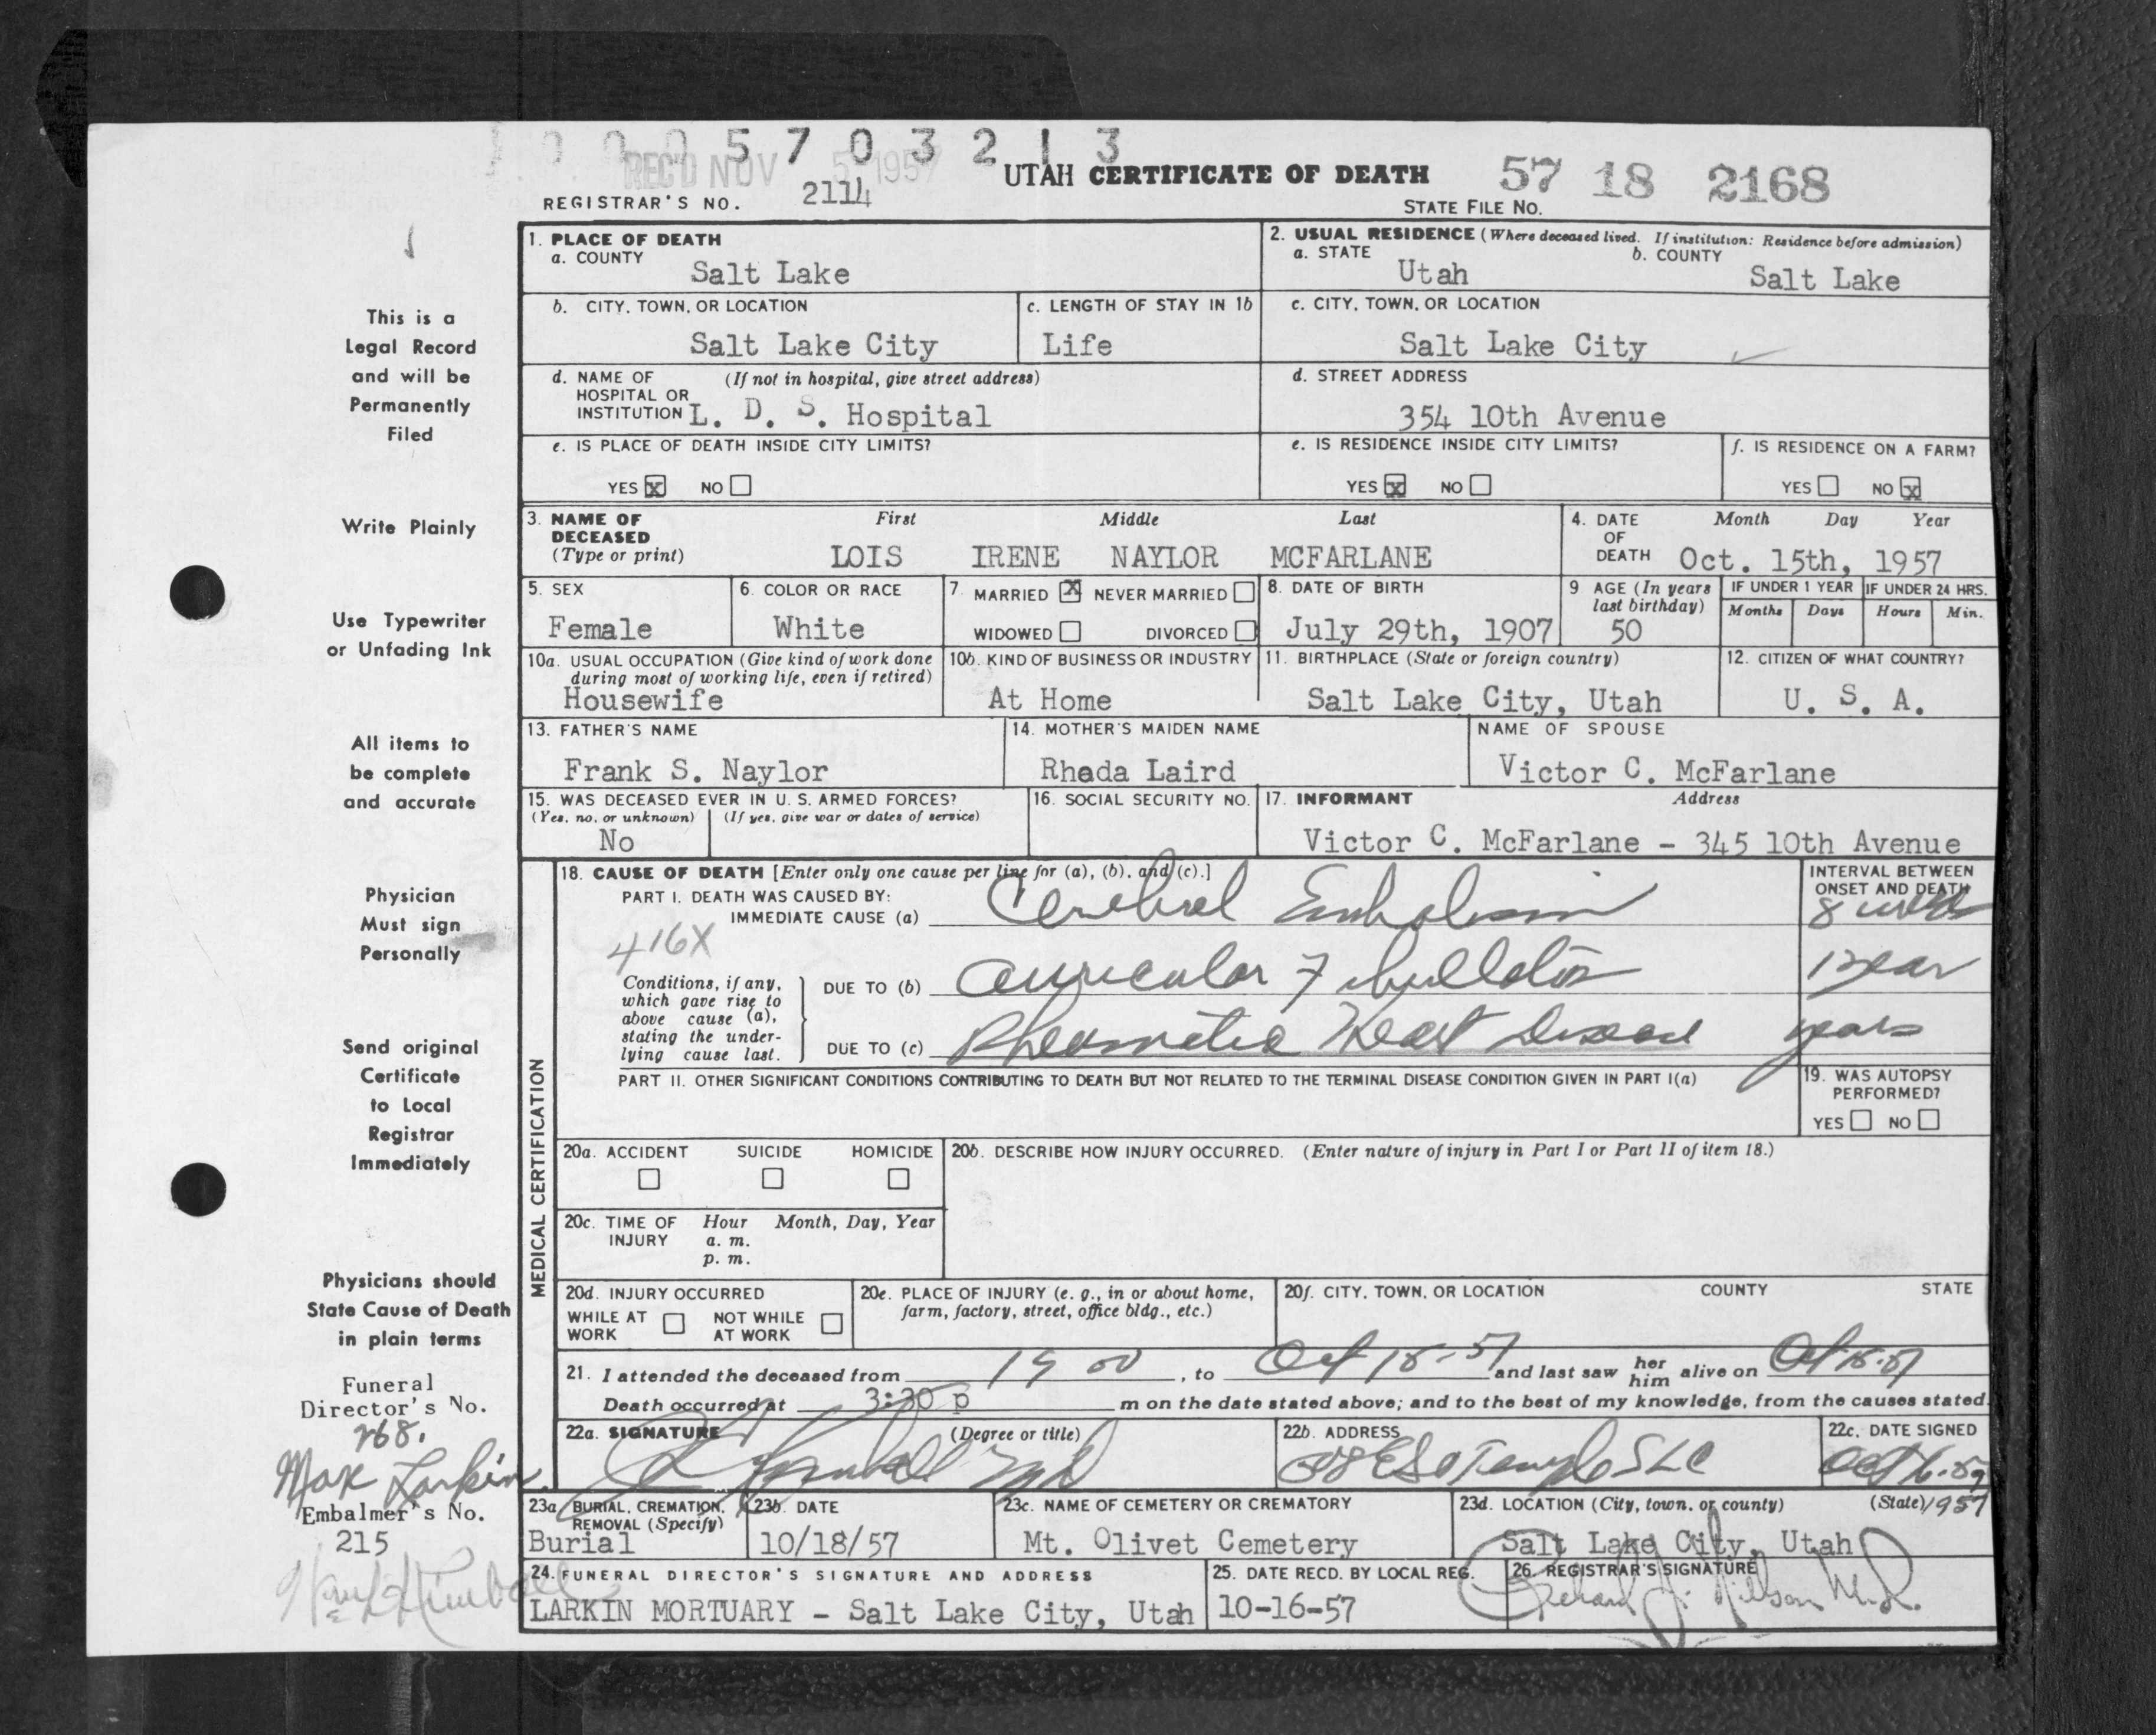 0 0 0 5 7 0 3 2 1 3
REC'D NOV 5 1957
UTAH CERTIFICATE OF DEATH
57 18 2168
REGISTRAR'S NO. 2114
STATE FILE NO.
This is a
Legal Record
and will be
Permanently
Filed
Write Plainly
Use Typewriter
or Unfading Ink
All items to
be complete
and accurate
Physician
Must sign
Personally
Send original
Certificate
to Local
Registrar
Immediately
Physicians should
State Cause of Death
in plain terms
Funeral
Director's No.
268.
Max Larkin
Embalmer's No.
215
1. PLACE OF DEATH
a. COUNTY
Salt Lake
2. USUAL RESIDENCE (Where deceased lived. If institution: Residence before admission)
a. STATE
Utah
b. COUNTY
Salt Lake
b. CITY, TOWN, OR LOCATION
Salt Lake City
c. LENGTH OF STAY IN 1b
Life
c. CITY, TOWN, OR LOCATION
Salt Lake City
d. NAME OF (If not in hospital, give street address)
HOSPITAL OR
INSTITUTION L. D. S. Hospital
d. STREET ADDRESS
354 10th Avenue
e. IS PLACE OF DEATH INSIDE CITY LIMITS?
YES X NO
e. IS RESIDENCE INSIDE CITY LIMITS?
YES X NO
f. IS RESIDENCE ON A FARM?
YES NO X
3. NAME OF
DECEASED
(Type or print)
First Middle Last
LOIS IRENE NAYLOR MCFARLANE
4. DATE
OF
DEATH
Month Day Year
Oct. 15th, 1957
5. SEX
Female
6. COLOR OR RACE
White
7. MARRIED X NEVER MARRIED
WIDOWED DIVORCED
8. DATE OF BIRTH
July 29th, 1907
9 AGE (In years
last birthday)
50
IF UNDER 1 YEAR
Months Days
IF UNDER 24 HRS.
Hours Min.
10a. USUAL OCCUPATION (Give kind of work done
during most of working life, even if retired)
Housewife
10b. KIND OF BUSINESS OR INDUSTRY
At Home
11. BIRTHPLACE (State or foreign country)
Salt Lake City, Utah
12. CITIZEN OF WHAT COUNTRY?
U. S. A.
13. FATHER'S NAME
Frank S. Naylor
14. MOTHER'S MAIDEN NAME
Rhoda Laird
NAME OF SPOUSE
Victor C. McFarlane
15. WAS DECEASED EVER IN U. S. ARMED FORCES?
(Yes, no, or unknown) (If yes, give war or dates of service)
No
16. SOCIAL SECURITY NO.
17. INFORMANT Address
Victor C. McFarlane - 345 10th Avenue
MEDICAL CERTIFICATION
18. CAUSE OF DEATH [Enter only one cause per line for (a), (b), and (c).]
PART I. DEATH WAS CAUSED BY:
IMMEDIATE CAUSE (a) Cerebral Embolism
INTERVAL BETWEEN
ONSET AND DEATH
8 weeks
416X
Conditions, if any,
which gave rise to
above cause (a),
stating the under-
lying cause last.
DUE TO (b) auricular fibrillation
1 year
DUE TO (c) Rheumatic Heart Disease
years
PART II. OTHER SIGNIFICANT CONDITIONS CONTRIBUTING TO DEATH BUT NOT RELATED TO THE TERMINAL DISEASE CONDITION GIVEN IN PART I(a)
19. WAS AUTOPSY
PERFORMED?
YES NO
20a. ACCIDENT SUICIDE HOMICIDE
20b. DESCRIBE HOW INJURY OCCURRED. (Enter nature of injury in Part I or Part II of item 18.)
20c. TIME OF
INJURY
Hour Month, Day, Year
a. m.
p. m.
20d. INJURY OCCURRED
WHILE AT
WORK
NOT WHILE
AT WORK
20e. PLACE OF INJURY (e. g., in or about home,
farm, factory, street, office bldg., etc.)
20f. CITY, TOWN, OR LOCATION COUNTY STATE
21. I attended the deceased from 19 , to Oct 15-57 and last saw her him alive on Oct 15-57
Death occurred at 3:30 p m on the date stated above; and to the best of my knowledge, from the causes stated.
22a. SIGNATURE (Degree or title)
Kimball MD
22b. ADDRESS
Temple SLC
22c. DATE SIGNED
Oct 16-57
1957
23a. BURIAL, CREMATION,
REMOVAL (Specify)
Burial
23b. DATE
10/18/57
23c. NAME OF CEMETERY OR CREMATORY
Mt. Olivet Cemetery
23d. LOCATION (City, town, or county) (State)
Salt Lake City, Utah
24. FUNERAL DIRECTOR'S SIGNATURE AND ADDRESS
LARKIN MORTUARY - Salt Lake City, Utah
25. DATE RECD. BY LOCAL REG.
10-16-57
26. REGISTRAR'S SIGNATURE
Richard J. Nilson M.D.